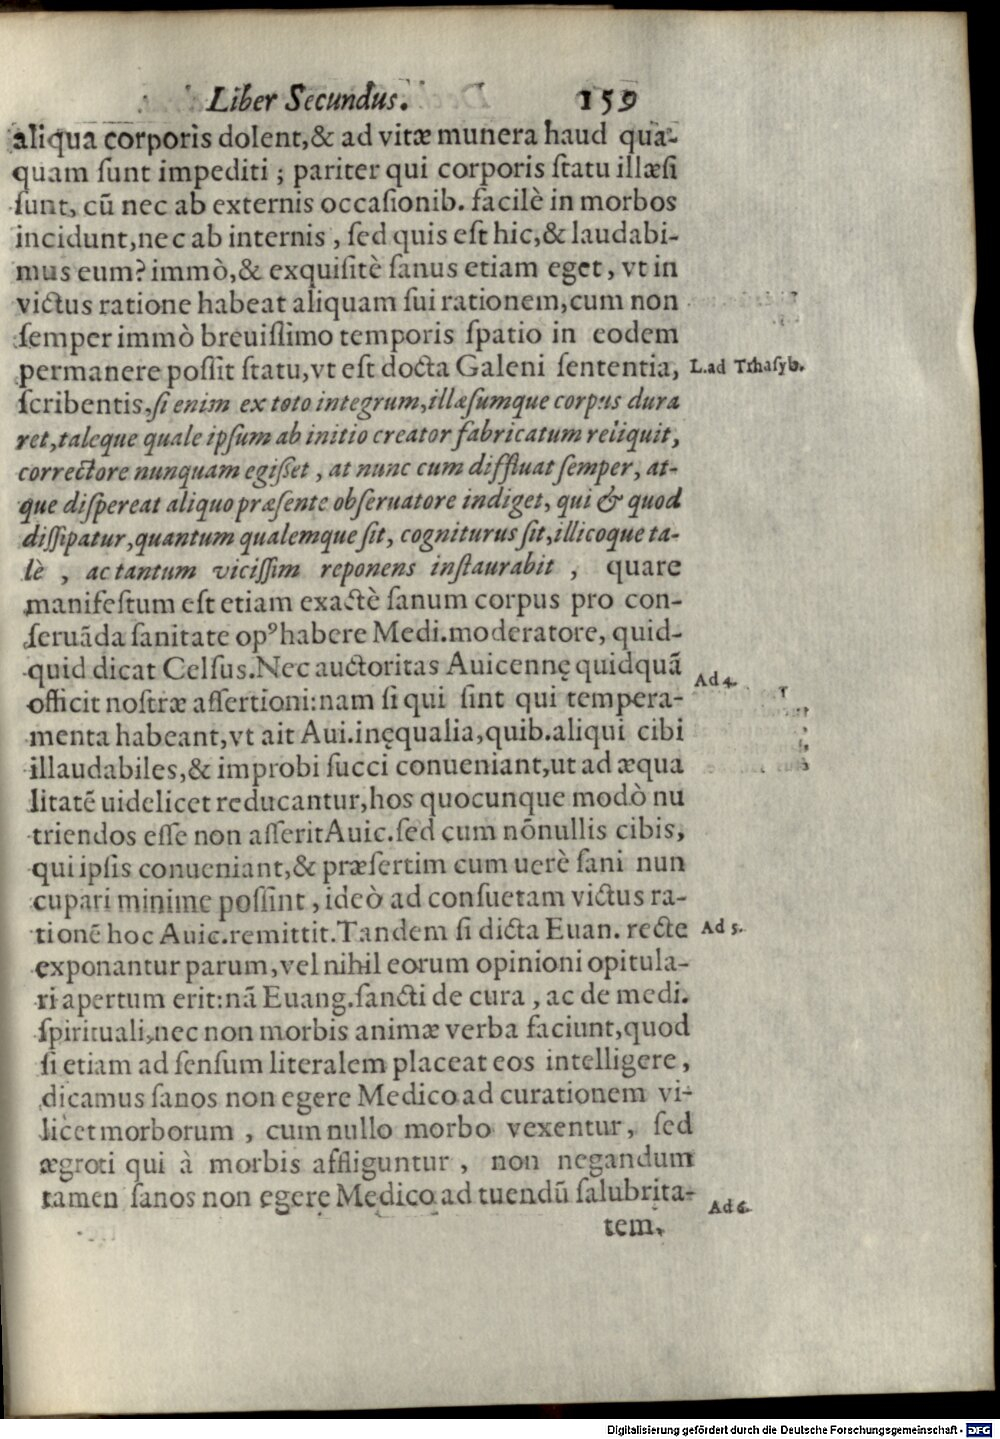 Liber Secundus. 159
aliqua corporis dolent,& ad vitæ munera haud qua-
quam ſunt impediti ; pariter qui corporis ſtatu illæſi
ſunt, cũ nec ab externis occaſionib. facilè in morbos
incidunt,nec ab internis , ſed quis eſt hic,& laudabi-
mus eum? immò,& exquiſitè ſanus etiam eget, vt in
victus ratione habeat aliquam ſui rationem,cum non
ſemper immò breuiſſimo temporis ſpatio in eodem
permanere poſſit ſtatu,vt eſt docta Galeni ſententia, L.ad Trhaſyb.
ſcribentis,ſi enim ex toto integrum,illæſumque corpus dura
ret,taleque quale ipſum ab initio creator fabricatum reliquit,
correctore nunquam egiſſet , at nunc cum diffluat ſemper, at-
que diſpereat aliquo præſente obſeruatore indiget, qui & quod
diſſipatur,quantum qualemque ſit, cogniturus ſit,illicoque ta-
lè , ac tantum viciſſim reponens inſtaurabit , quare
manifeſtum eſt etiam exactè ſanum corpus pro con-
ſeruãda ſanitate opꝰ habere Medi.moderatore, quid-
quid dicat Celſus.Nec auctoritas Auicennę quidquã
officit noſtræ aſſertioni:nam ſi qui ſint qui tempera- Ad 4.
menta habeant,vt ait Aui.inęqualia,quib.aliqui cibi
illaudabiles,& improbi ſucci conueniant,ut ad æqua
litatẽ uidelicet reducantur,hos quocunque modò nu
triendos eſſe non aſſerit Auic.ſed cum nõnullis cibis,
qui ipſis conueniant,& præſertim cum uerè ſani nun
cupari minime poſſint , ideò ad conſuetam victus ra-
tionẽ hoc Auic.remittit.Tandem ſi dicta Euan. recte Ad 5.
exponantur parum,vel nihil eorum opinioni opitula-
ri apertum erit:nã Euang.ſancti de cura , ac de medi.
ſpirituali,nec non morbis animæ verba faciunt,quod
ſi etiam ad ſenſum literalem placeat eos intelligere ,
dicamus ſanos non egere Medico ad curationem vi-
licet morborum , cum nullo morbo vexentur, ſed
ægroti qui à morbis affliguntur , non negandum
tamen ſanos non egere Medico ad tuendũ ſalubrita- Ad 6.
tem,
Digitalisierung gefördert durch die Deutsche Forschungsgemeinschaft - DFG